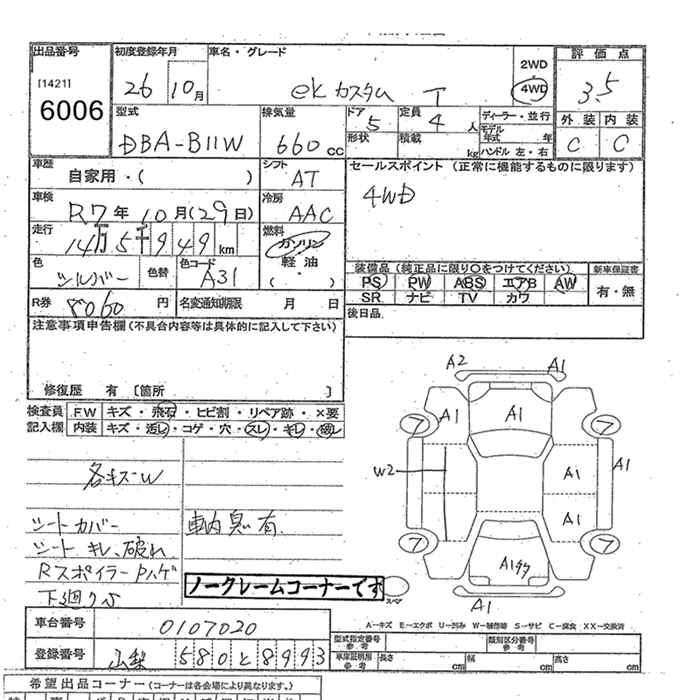 出品番号 初度登録年月 車名・グレード 評価点
[1421] 26 10月 ekカスタム T 2WD 4WD 3.5
6006
型式 排気量 ドア 定員 ディーラー・並行 外装 内装
DBA-B11W 660cc 5 4人 モデル年式 年 C C
形状 積載 kg ハンドル 左・右
車歴 シフト セールスポイント(正常に機能するものに限ります)
自家用・( ) AT 4WD
車検 冷房
R7年10月(29日) AAC
走行 燃料
14万5千949km ガソリン
軽油
( )
色 色替 色コード 装備品(純正品に限り〇をつけてください) 新車保証書
シルバー A31 PS PW ABS エアB AW 有・無
R券 8060円 名変通知期限 月 日 SR ナビ TV カワ
後日品
注意事項申告欄(不具合内容等は具体的に記入して下さい)
修復歴 有 [箇所 ]
検査員 FW キズ・飛石・ヒビ割・リペア跡・×要
記入欄 内装 キズ・汚レ・コゲ・穴・スレ・キレ・破レ
A2 A1
A1 A1
7 7
W2 A1 A1
A1
7 7
A1
A1
スペア
各キズW
シートカバー 車内臭い有
シートキレ、破れ
RスポイラーPハゲ
ノークレームコーナーです
下廻りS
A-キズ E-エクボ U-凹み W-補修跡 S-サビ C-腐食 XX-交換済
車台番号 0107020
型式指定番号 参考 類別区分番号 参考
登録番号 山梨 580と8993
車庫証明用 参考 長さ cm 幅 cm 高さ cm
希望出品コーナー(コーナーは各会場により異なります。)